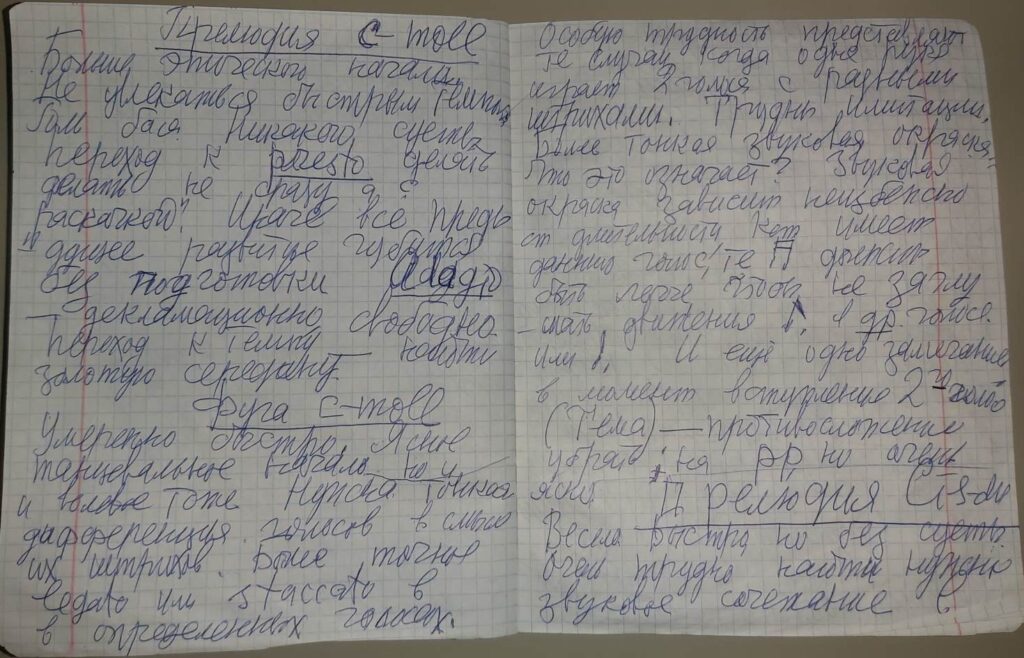 Прелюдия c-moll
Больше этического начала.
Не увлекаться быстрым темпом
Роль баса. Никакой суеты,
переход к presto делать
делать не сразу а с
"раскачкой". Иначе всё преды
дущее развитие
без подготовки Adagio
— декламационно свободно.
Переход к темпу — найти
золотую середину.
Фуга c-moll
Умеренно быстро. Ясное
танцевальное начало но и
и волевое тоже Нужна тонкая
дифференция голосов в смысле
их штрихов. Более точное
legato или staccato в
в определенных голосах.
Особую трудность представляют
те случаи когда одна рука
играет 2 голоса с разными
штрихами. Трудны имитации,
более тонкая звуковая окраска.
Что это означает? Звуковая
окраска зависит неизбежно
от длительности кот имеет
данный голос, те П должны
быть легче чтобы не заглу
– шать движения ♪ в др. голосе.
или ♩. И ещё одно замечание
в момент вступление 2го голоса
(Тема) — противосложение
убрать на pp но очень
ясно Прелюдия Cis-dur
Весьма быстро но без суеты.
Очень трудно найти нужную
звуковое сочетание в